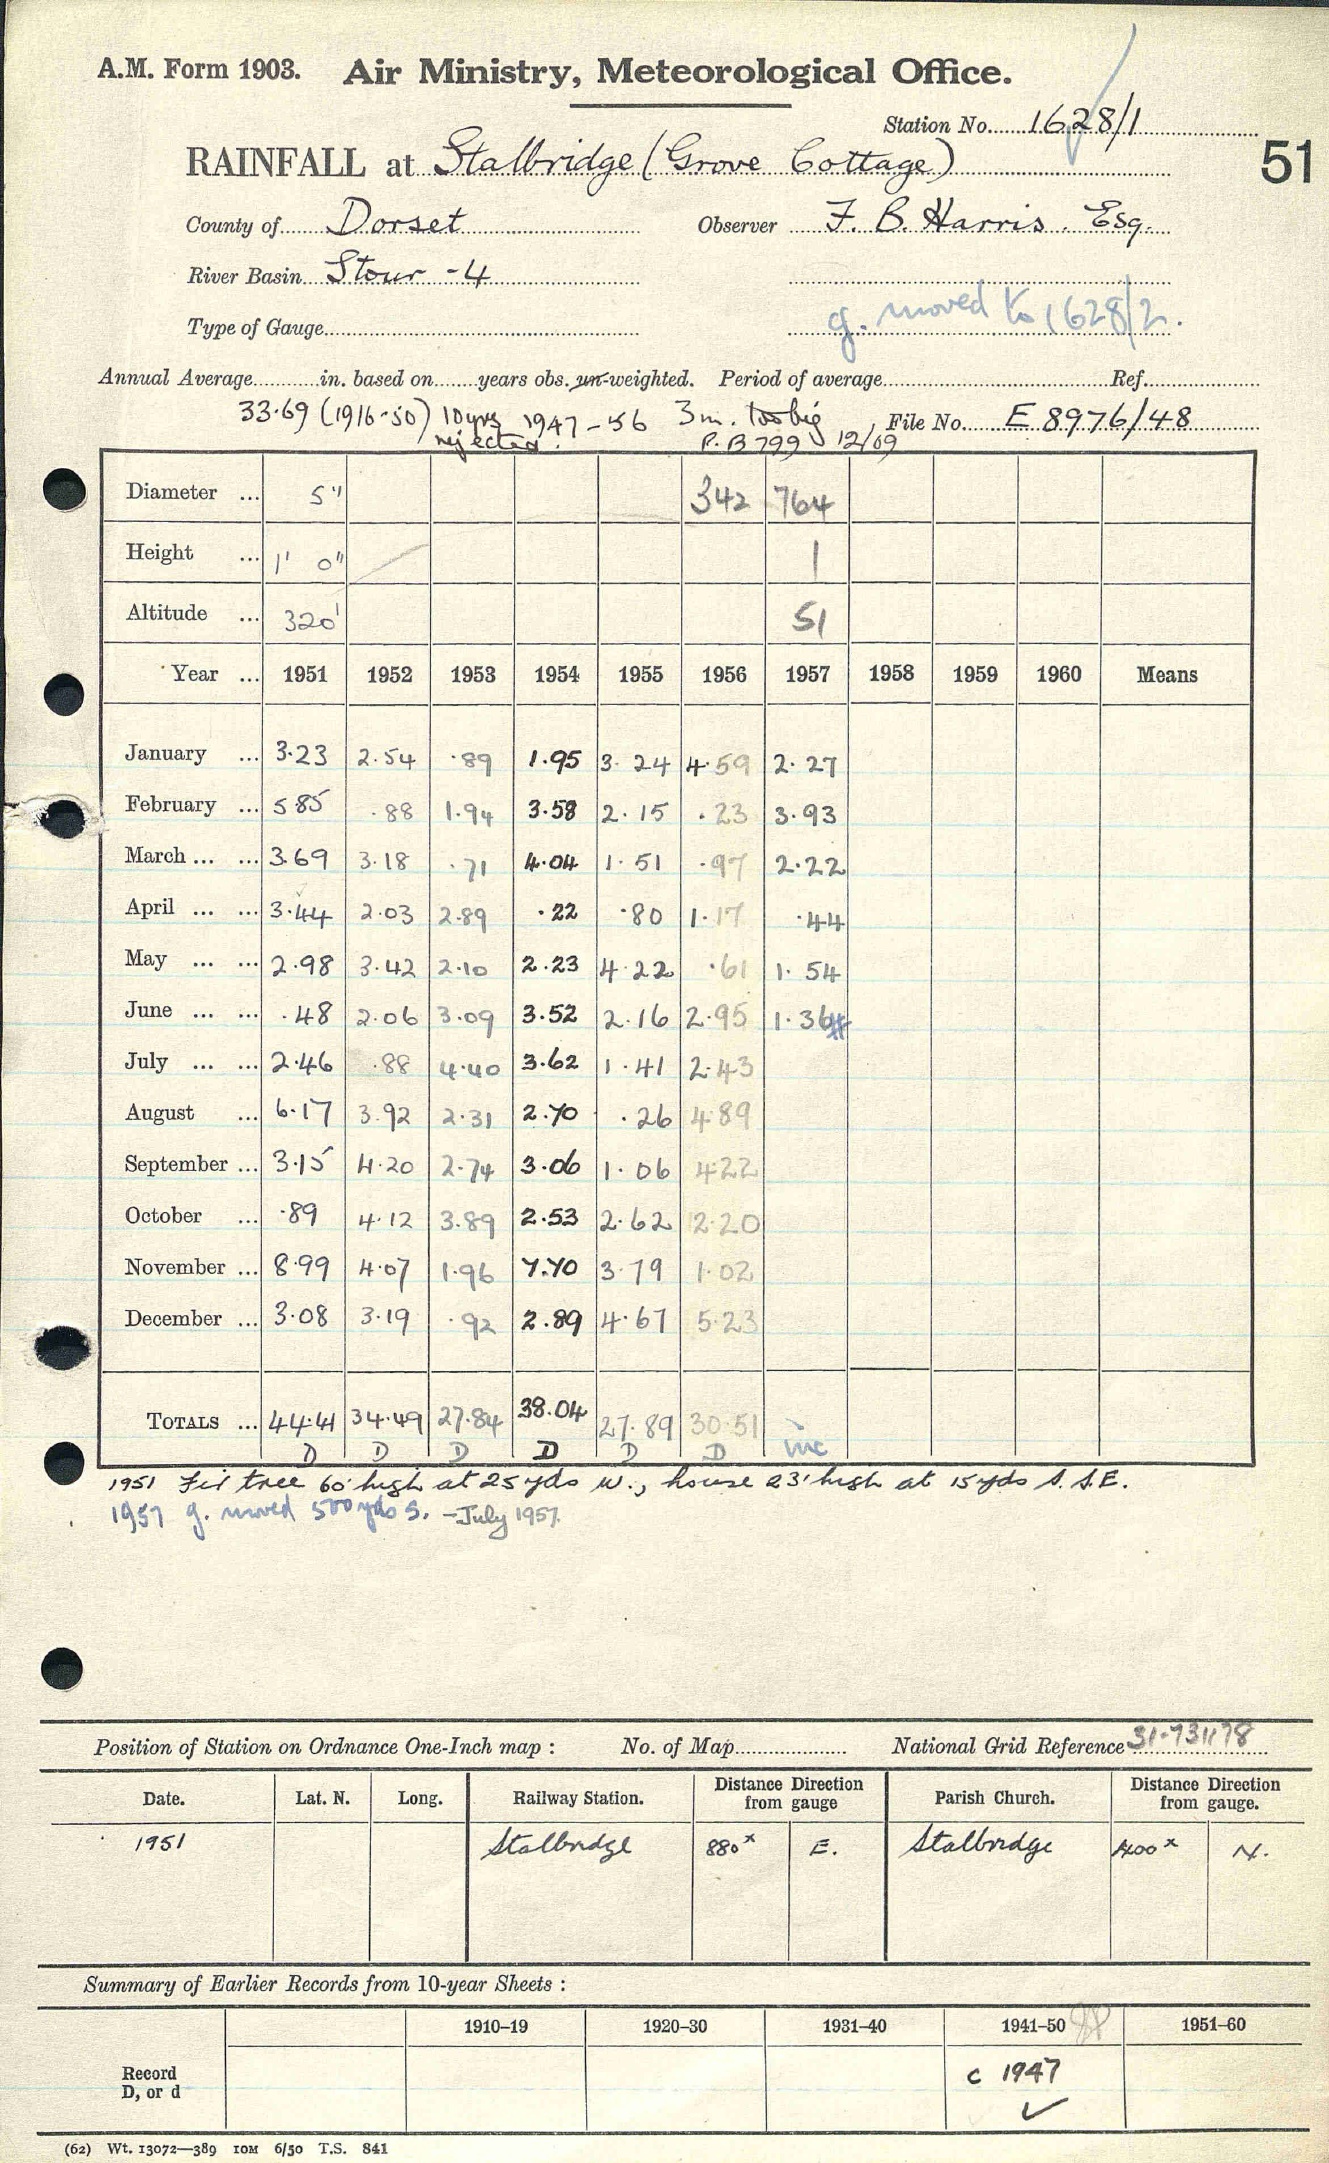 A.M. Form 1903. Air Ministry, Meteorological Office.
Station No. 1628/1
RAINFALL at Stalbridge (Grove Cottage)
51
County of Dorset Observer F. B. Harris. Esq.
River Basin Stour -4
Type of Gauge g. moved to 1628/2.
Annual Average in. based on years obs. un-weighted. Period of average Ref.
33.69 (1916-50) 10 yrs 1947-56 3m. too big File No. E 8976/48
rejected. P.B 799 12/69
Diameter ... 5" 342 764
Height ... 1' 0" 1
Altitude ... 320' 51
Year ... 1951 1952 1953 1954 1955 1956 1957 1958 1959 1960 Means
January ... 3.23 2.54 .89 1.95 3.24 4.59 2.27
February ... 5.85 .88 1.94 3.58 2.15 .23 3.93
March ... ... 3.69 3.18 .71 4.04 1.51 .97 2.22
April ... ... 3.44 2.03 2.89 .22 .80 1.17 .44
May ... ... 2.98 3.42 2.10 2.23 4.22 .61 1.54
June ... ... .48 2.06 3.09 3.52 2.16 2.95 1.36#
July ... ... 2.46 .88 4.40 3.62 1.41 2.43
August ... 6.17 3.92 2.31 2.70 .26 4.89
September ... 3.15 4.20 2.74 3.06 1.06 4.22
October ... .89 4.12 3.89 2.53 2.62 2.20
November ... 8.99 4.07 1.96 7.70 3.79 1.02
December ... 3.08 3.19 .92 2.89 4.67 5.23
TOTALS ... 44.41 34.49 27.84 38.04 27.89 30.51 inc
D D D D D D
1951 Fir tree 60' high at 25 yds W., house 23' high at 15 yds S.S.E.
1957 g. moved 500 yds S. -July 1957.
Position of Station on Ordnance One-Inch map : No. of Map National Grid Reference 31.731178
Date. Lat. N. Long. Railway Station. Distance Direction from gauge Parish Church. Distance Direction from gauge.
1951 Stalbridge 880x E. Stalbridge 400x N.
Summary of Earlier Records from 10-year Sheets :
1910–19 1920–30 1931–40 1941–50 1951–60
Record D, or d c 1947
(62) Wt. 13072—389 10M 6/50 T.S. 841